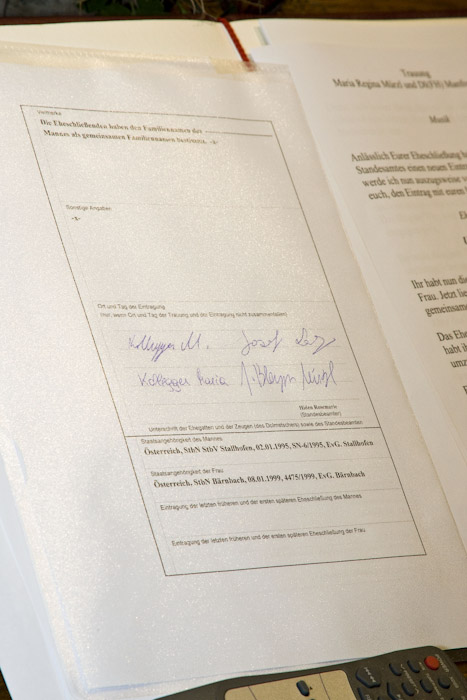 Vermerke
Die Eheschließenden haben den Familiennamen des
Mannes als gemeinsamen Familiennamen bestimmt. -x-
Sonstige Angaben
-x-
Ort und Tag der Eintragung
(nur, wenn Ort und Tag der Trauung und der Eintragung nicht zusammenfallen)
Kollegger M. Josef
Kollegger Maria
(Standesbeamter)
Unterschrift der Ehegatten und der Zeugen (des Dolmetschers) sowie des Standesbeamten
Staatsangehörigkeit des Mannes
Österreich, StbN StbN Stallhofen, 02.01.1995, SN-6/1995, EvG. Stallhofen
Staatsangehörigkeit der Frau
Österreich, StbN Bärnbach, 08.01.1999, 4475/1999, EvG. Bärnbach
Eintragung der letzten früheren und der ersten späteren Eheschließung des Mannes
Eintragung der letzten früheren und der ersten späteren Eheschließung der Frau
Trauung
Maria Regina Münzl und
Musik
Anlässlich Eurer Eheschließung
Standesamtes einen neuen
werde ich nun auszugsweise
euch, den Eintrag mit euren
Ihr habt nun die
Frau. Jetzt
gemeinsame
Das
habt